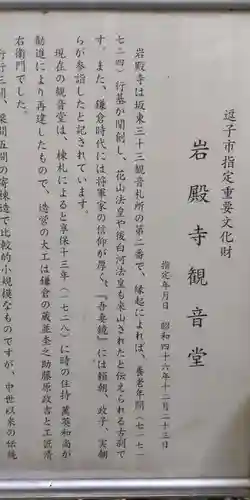 逗子市指定重要文化財
岩殿寺観音堂
指定年月日 昭和四十六年十二月二十三日
岩殿寺は坂東三十三観音札所の第二番で、縁起によれば、養老年間(七一七―
七二四)行基が開創し、花山法皇や後白河法皇も来山されたと伝えられる古刹で
す。また、鎌倉時代には将軍家の信仰が厚く、『吾妻鏡』には頼朝、政子、実朝
らが参詣したと記されています。
現在の観音堂は、棟札によると享保十三年(一七二八)に時の住持
勧進により再建したもので、造営の大工は鎌倉の蔵並
右衛門でした。
桁行三間、梁間五間の寄棟造で比較的小規模なものですが、中世以来の伝統